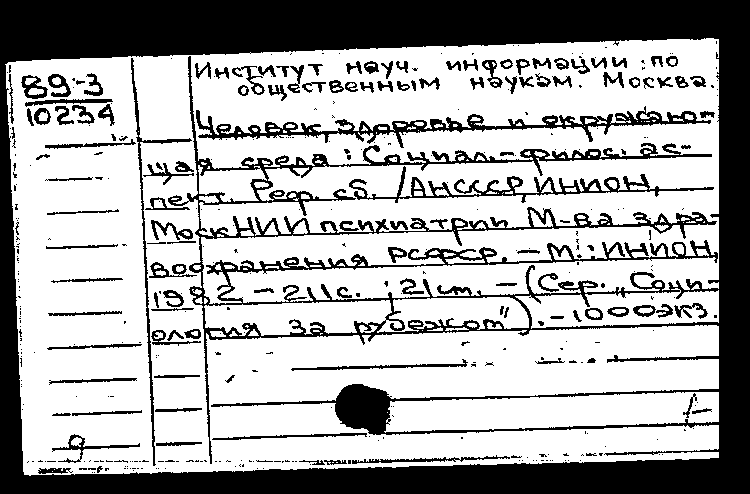 89-3
10234
Институт науч. информации по
общественным наукам. Москва.
Человек, здоровье и окружаю-
щая среда: Социал.-филос. ас-
пект. Реф. сб. /АНСССР, ИНИОН,
МоскНИИ психиатрии М-ва здра-
воохранения РСФСР. – М.: ИНИОН,
1982 – 211с. ; 21см. – (Сер. „Соци-
ология за рубежом"). – 1000экз.
9